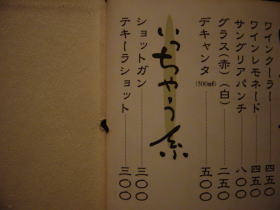 ワインクーラー 四五〇
ワインレモネード 四五〇
サングリアパンチ 八〇〇
グラス(赤)(白) 二五〇
デキャンタ(500ml) 五〇〇
いっちゃう系
ショットガン 三〇〇
テキーラショット 三〇〇